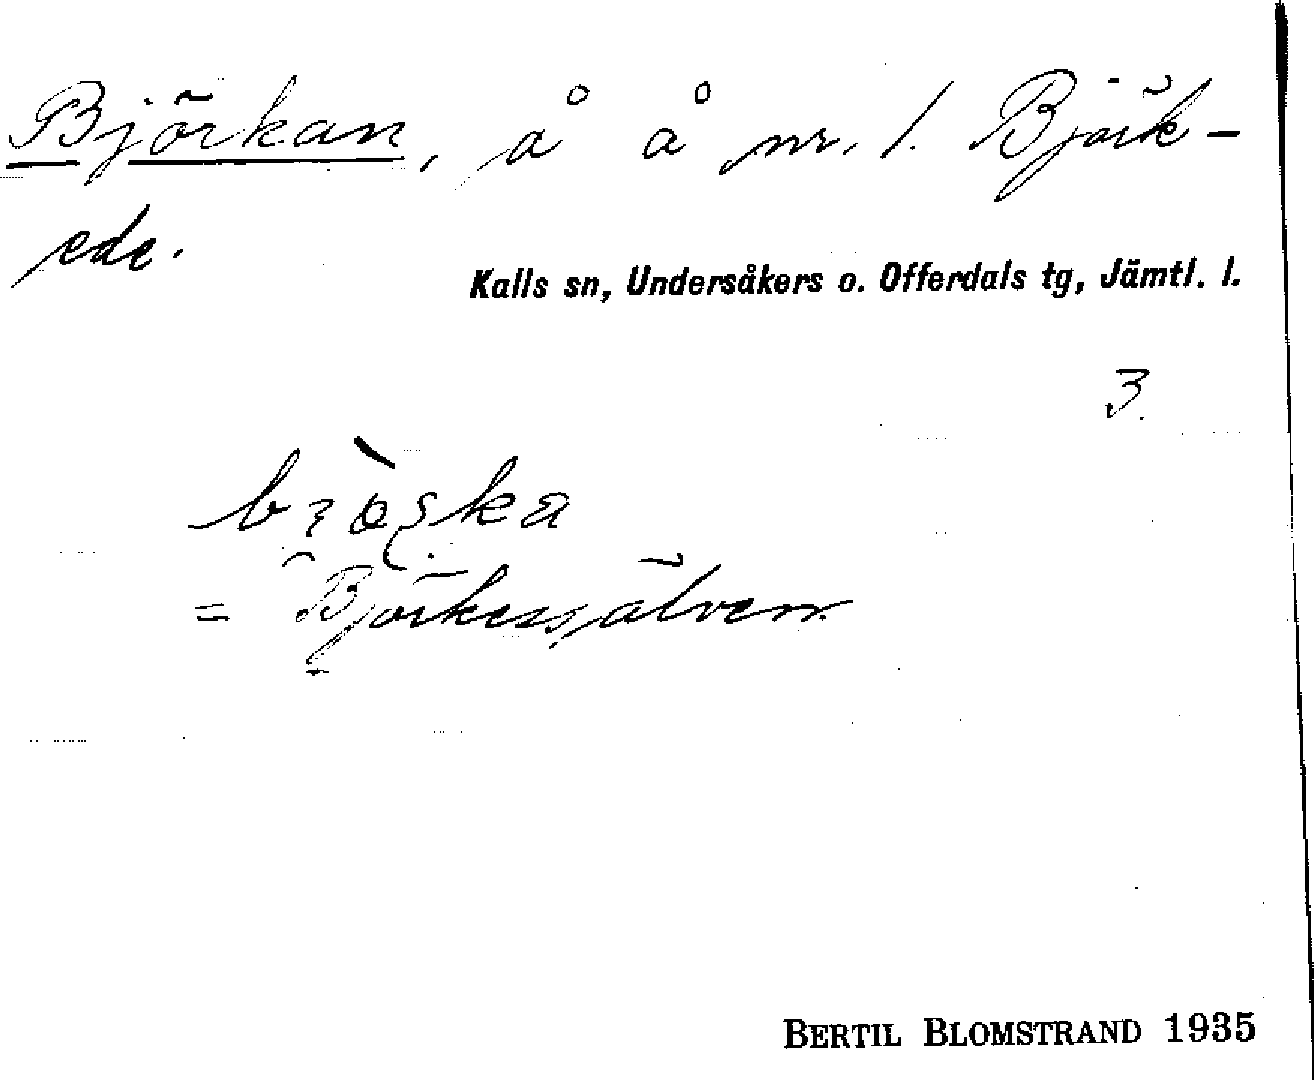 Björkan, å å nr. 1. Björk-
ede.
Kalls sn, Undersåkers o. Offerdals tg, Jämtl. l.
3.
= Björkessjälven
BERTIL BLOMSTRAND 1935